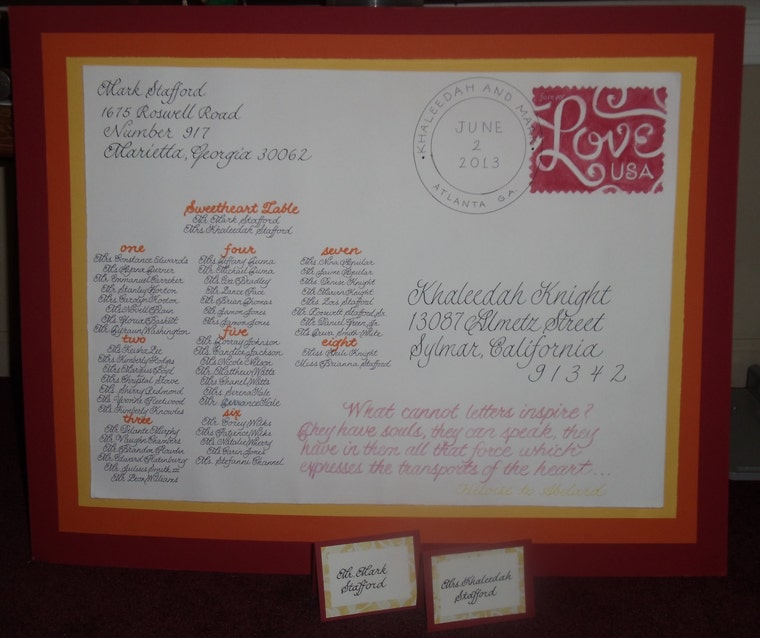 Mark Stafford
1675 Roswell Road
Number 917
Marietta, Georgia 30062
KHALEEDAH AND MARK
JUNE
2
2013
ATLANTA GA
Love
USA
Sweetheart Table
Mr. Mark Stafford
Mrs. Khaleedah Stafford
one
Mrs. Constance Edwards
Mr. Emmanuel
Mr. Stanley
Mrs. Carolyn
Ms. Gloria
Washington
two
Lee
Mrs. Kimberly
Ms. Chrystal
Ms. Sherry Redmond
Ms. Yvonne Fleetwood
Ms. Kimberly Knowles
three
Murphy
Mr. Vaughn Chambers
Mr. Brandon
Mr. Edward
Mr. Julius Smith
Mr. Leon Williams
four
Mrs. Tiffany
Mr. Michael
Ms. Eve Bradley
Mr. Lance
Mr. Brian Thomas
Mr. Damon Jones
Mrs. Damon Jones
five
Mr. Corray Johnson
Ms. Candice Jackson
Ms. Nicole Wilson
Mr. Matthew Watts
Mrs. Chanel Watts
Mrs. Serena Hale
Mr. Terrance Hale
six
Mr. Corey Wilks
Mrs. Patience Wilks
Ms. Natalie
Ms. Jones
Ms. Stefanni Channel
seven
Mrs. Nina Aguilar
Mr. Jaime Aguilar
Mrs. Denise Knight
Mr. Knight
Mrs. Lois Stafford
Mr. Roosevelt Stafford Sr.
Mr. Daniel Green Jr.
Ms. Smith White
eight
Miss Knight
Miss Brianna Stafford
Khaleedah Knight
13087 Almetz Street
Sylmar, California
91342
What cannot letters inspire?
They have souls, they can speak, they
have in them all that force which
expresses the transports of the heart...
Heloise to Abelard
Mr. Mark
Stafford
Mrs. Khaleedah
Stafford